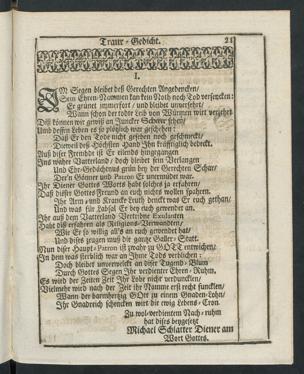 Traur-Gedicht. 21
I.
IM Segen bleibet deß Gerechten Angedencken/
Sein Ehren-Nammen kan kein Noth noch Tod versencken:
Er grünet immerfort / und bleibet unversehrt/
Wann schon der todte Leib von Würmen wirt verzehrt
Diß können wir gewiß an Juncker sehen/
Und dessen Leben es so plötzlich war geschehen:
Daß Er den Tode nicht gesehen noch geschmeckt/
Dieweil deß Höchsten Hand Ihn kräfftiglich bedeckt.
Auß diser Frembde ist Er eilendts hingegangen
Ins wahre Vatterland / doch bleibet sein Verlangen
Und Ehr-Gedächtnus grün bey der Gerechten Schar/
Der'n Gönner und Patron Er unermüdet war.
Ihr Diener Gottes Worts habt solches ja erfahren/
Daß diser Gottes Freund an euch nichts wollen spahren.
Ihr Arm und Krancke Leuth denckt was Er euch gethan/
Und was für Labsal Er bey euch gewendet an.
Ihr auß dem Vatterland Vertribne Exulanten
Habt diß erfahren als Religions-Verwandten/
Wie Er so willig all's an euch gewendet hat/
Und dises zeugen muß die gantze Galler-Statt.
Nun diser Haupt-Patron ist zwahr zu GOTT entwichen/
In dem was sterblich war an Ihme Tods verblichen:
Doch bleibet unverwelckt an diser Tugend-Blum
Durch Gottes Segen Ihr verdienter Ehren-Ruhm.
Es wird der Zeiten Zeit Ihr Lobe nicht verduncklen/
Vielmehr wird nach der Zeit ihr Namme erst recht funcklen/
Wann der barmhertzig GOtt zu einem Gnaden-Lohn/
Ihr Gnadreich schencken wirt die ewig Lebens-Cron.
Zu wol-verdientem Nach-ruhm
hat dises beygesetzt
Michael Schlatter Diener am
Wort Gottes.